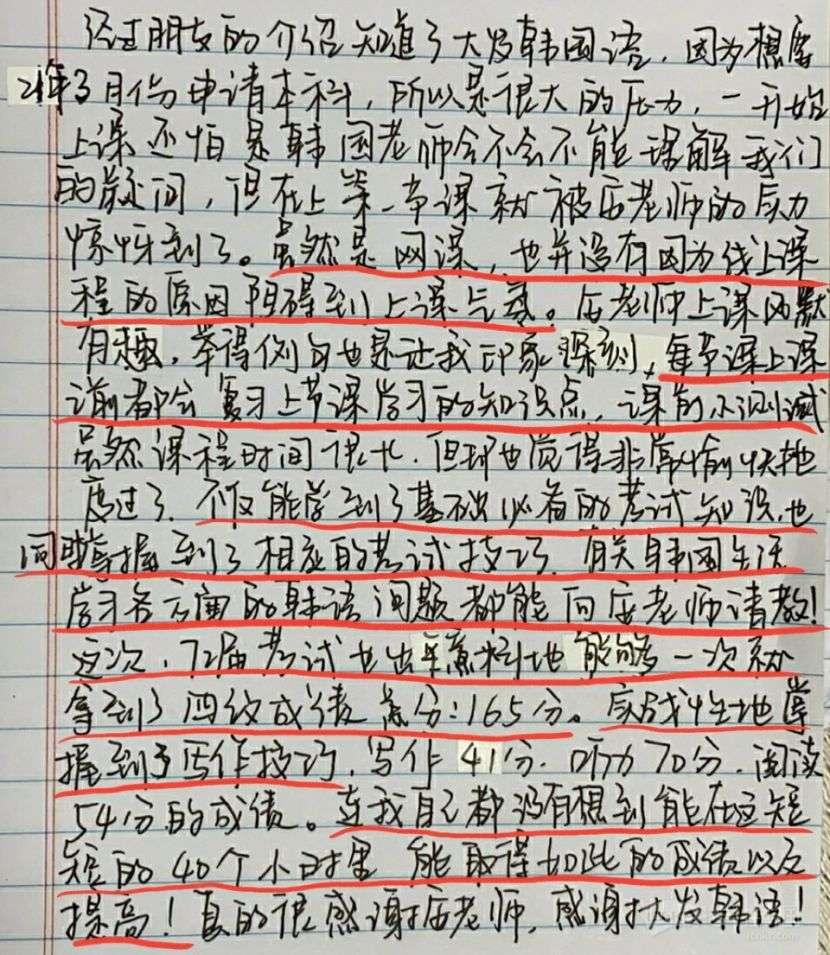 经过朋友的介绍知道了大发韩国语，因为想摩
21年3月份申请本科，所以是很大的压力，一开始
上课还怕是韩国老师会不会不能理解我们
的疑问，但在上第一节课就被店老师的实力
惊讶到了。虽然是网课，也并没有因为线上课
程的原因阻碍得到上课气氛。店老师上课幽默
有趣，举得例句也是让我印象深刻，每节课上课
之前都会复习上节课学习的知识点，课前小测试
虽然课程时间很长，但却也觉得非常愉快地
度过了，不仅能学到了基础必备的考试知识，也
同时掌握到了相应的考试技巧，有关韩国生活
学习各方面的韩语问题都能向店老师请教！
这次，72届考试也出乎意料地能够一次就
拿到了四级成绩总分：165分。实战性地掌
握到了写作技巧，写作41分，听力70分，阅读
54分的成绩。连我自己都没有想到能在这短
短的40个小时里能取得如此的成绩以及
提高！真的很感谢店老师，感谢大发韩语！